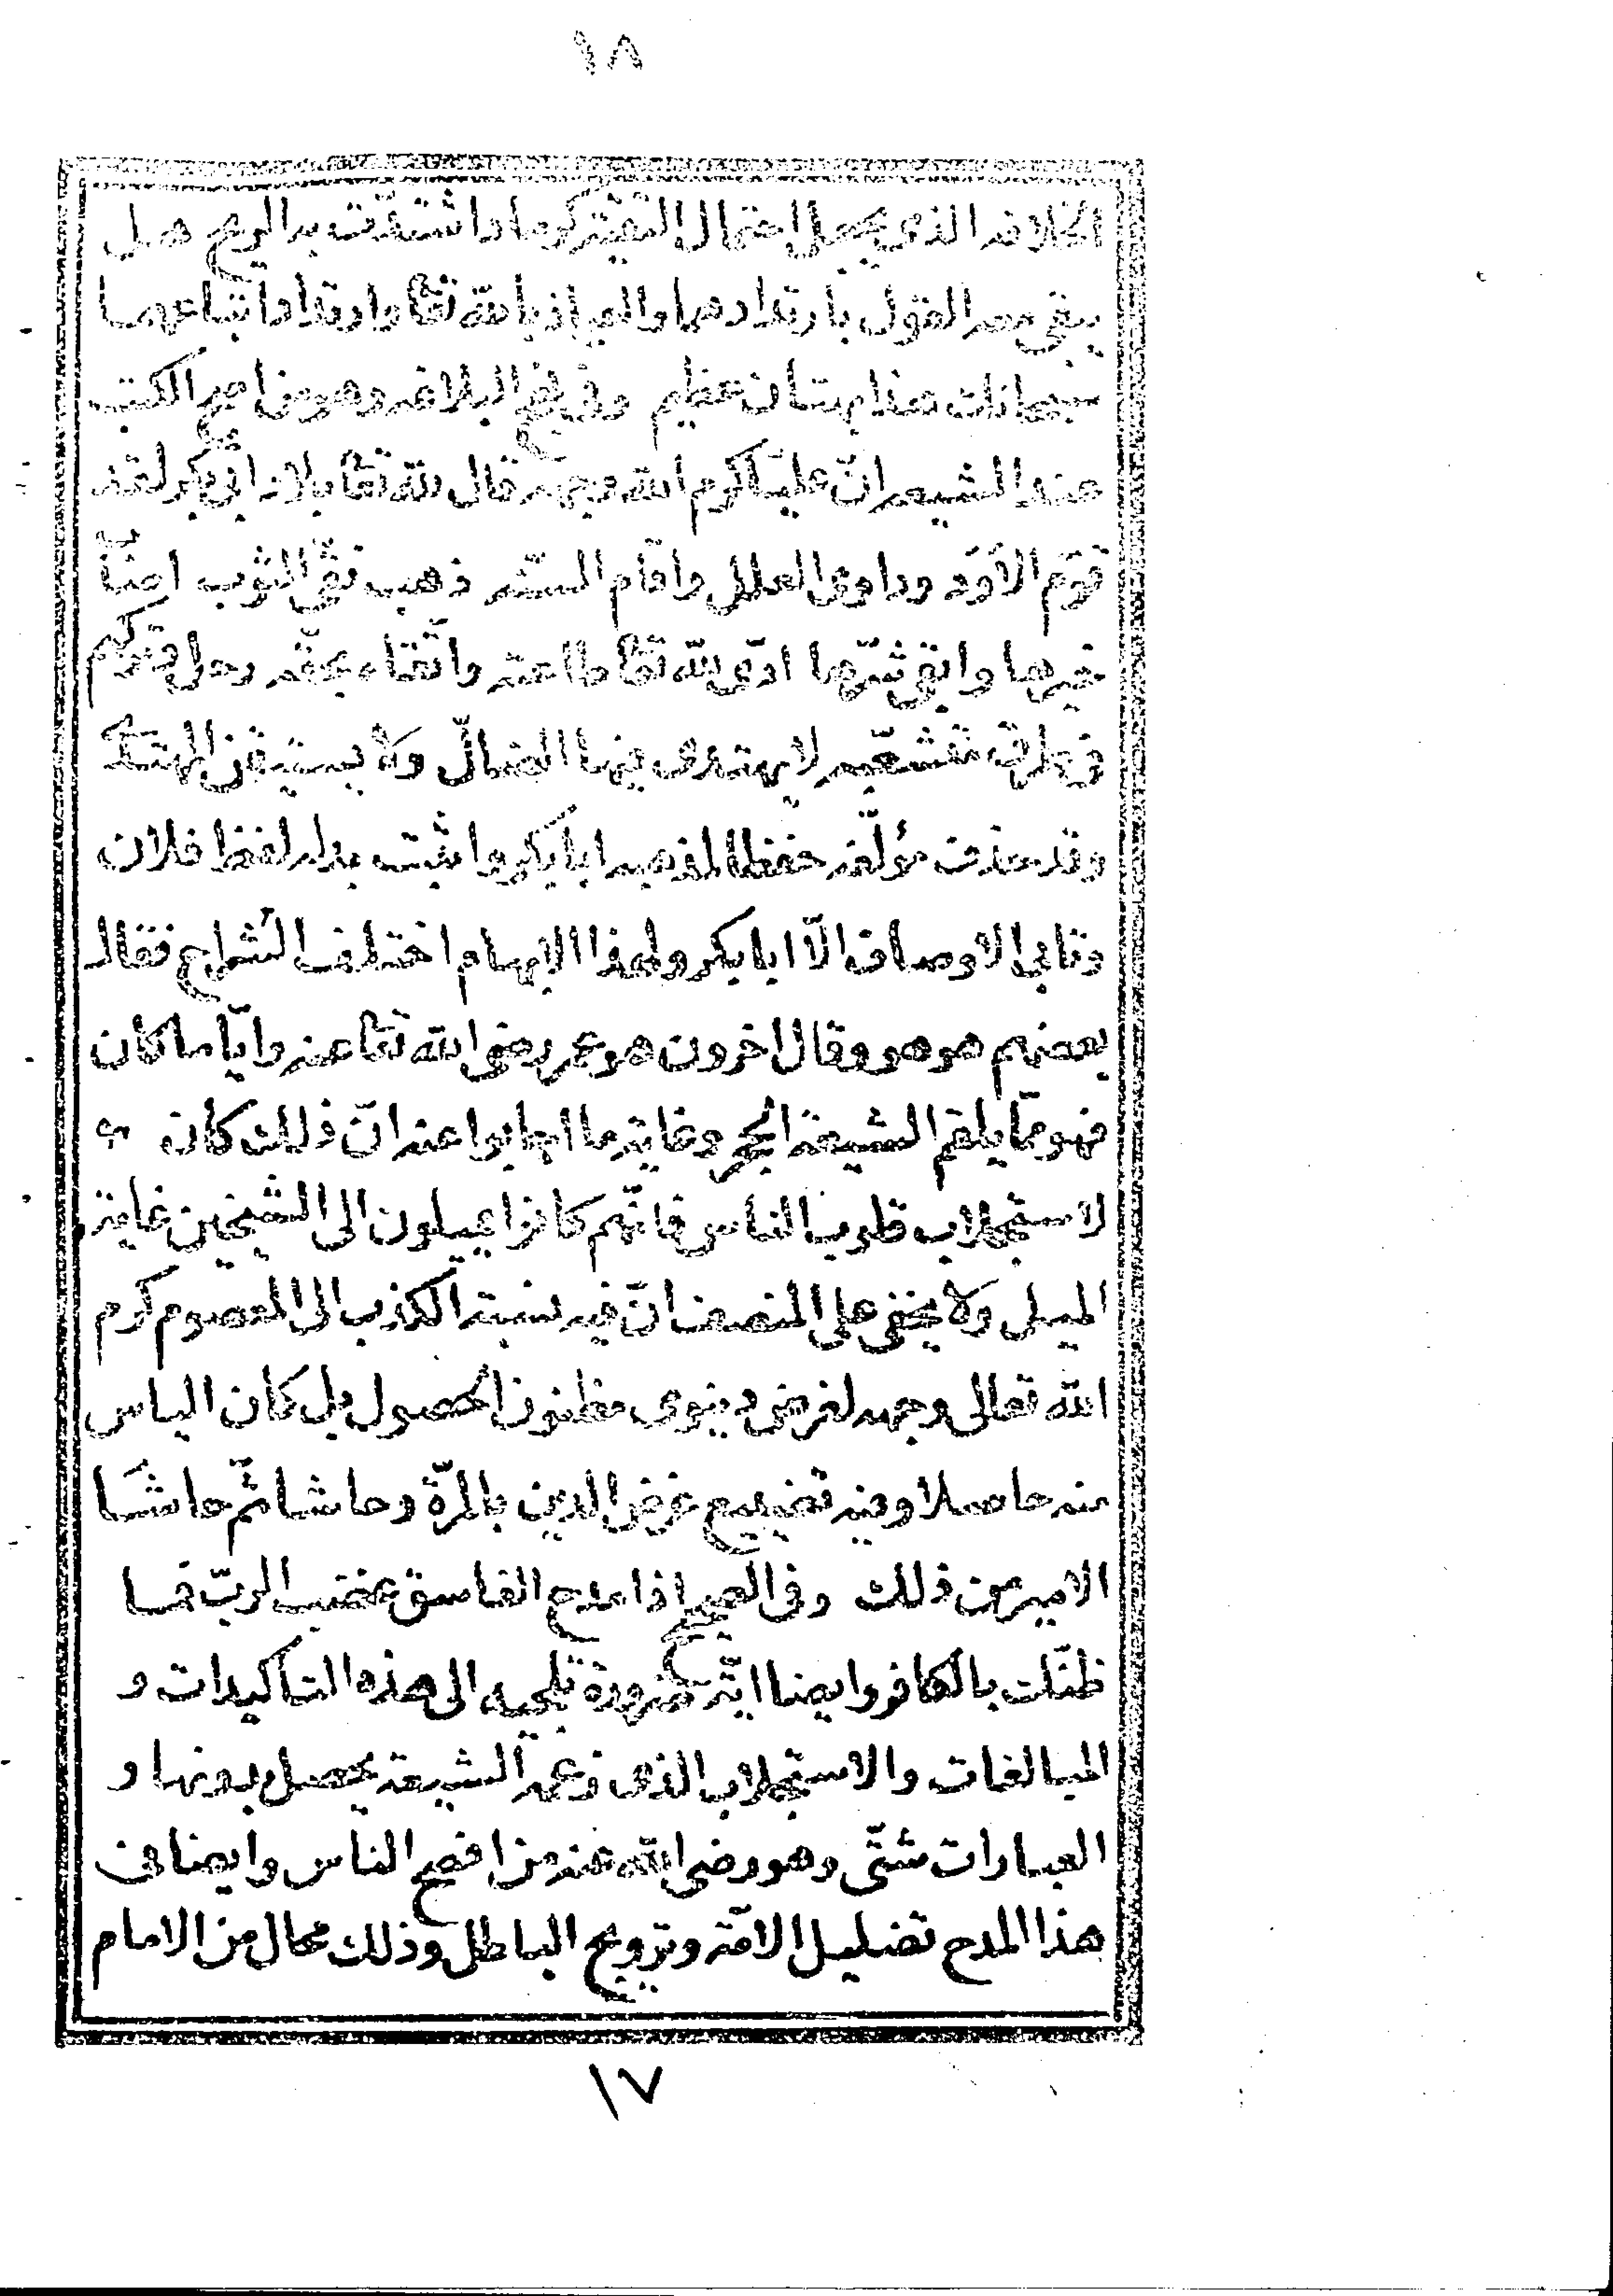 ١٨
الخلافة الذى يجعل احتمال التقيّة كرماد اشتدّت به الريح هل
يبقى معه القول بارتدادهما والعياذ بالله تعا وارتداد اتباعهما
سبحانك هذا بهتان عظيم وفى نهج البلاغه وهو من اصح الكتب
عند الشيعه انّ عليّا كرم الله وجهه قال لله تعا بلاد ابى بكر لقد
قوّم الاَوَد وداوى العلل واقام السنّه ذهب نقىّ الثوب اصاب
خيرها واتقى شرّها ادّى لله تعا طاعته واتّقاه بحقّه رحل وتركهم
فى طرق متشعّبه لا يهتدى فيها الضالّ ولا يستيقن المهتدى
وقد حذف مؤلّفه حفظا لمذهبه ابا بكر واثبت بدله لفظ فلان
وتابى الاوصاف الّا ابا بكر ولهذا الابهام اختلف الشراح فقال
بعضهم هو هو وقال اخرون هو عمر رضى الله تعا عنه وايّا ما كان
فهو ممّا يلقم الشيعة الحجر وغاية ما اجابوا عنه انّ ذلك كان
لاستجلاب قلوب الناس فانّهم كانوا يميلون الى الشيخين غاية
الميل ولا يخفى على المنصف انّ فيه نسبة الكذب الى المعصوم كرم
الله تعالى وجهه لغرض دنيوى مظنون الحصول بل كان الياس
منه حاصلا وفيه تضييع غرض الدين بالمرّة وحاشا ثمّ حاشا
الامير من ذلك وفى الصحيح اذا مدح الفاسق غضب الربّ فما
ظنّك بالكافر وايضا ايّة ضرورة تلجيه الى هذه التاكيدات و
المبالغات والاستجلاب الذى زعمه الشيعة يحصل بدونها و
العبارات شتّى وهو رضى الله عنه من افصح الناس وايضا فى
هذا المدح تضليل الامّة وترويج الباطل وذلك محال من الامام
١٧